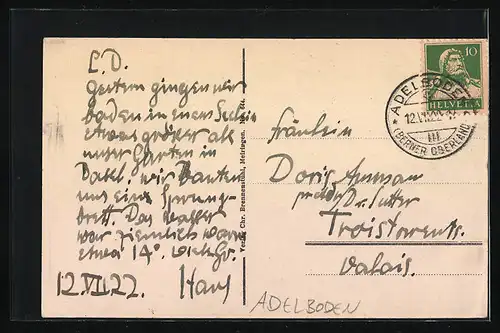 L.D.
Gestern gingen wir
baden in einen Seelein
etwas größer als
unser Garten in
Basel. Wir bauten
uns eine Sprung-
brett. Das Wasser
war ziemlich warm
etwa 14°. viele Gr.
12.VII.22. Hans
Verlag Chr. Brennenstuhl, Meiringen.
Fräulein
Doris Amman
Dr. Sutter
Troistorrents
Valais.
10
HELVETIA
ADELBODEN
(BERNER OBERLAND)
III
ADELBODEN